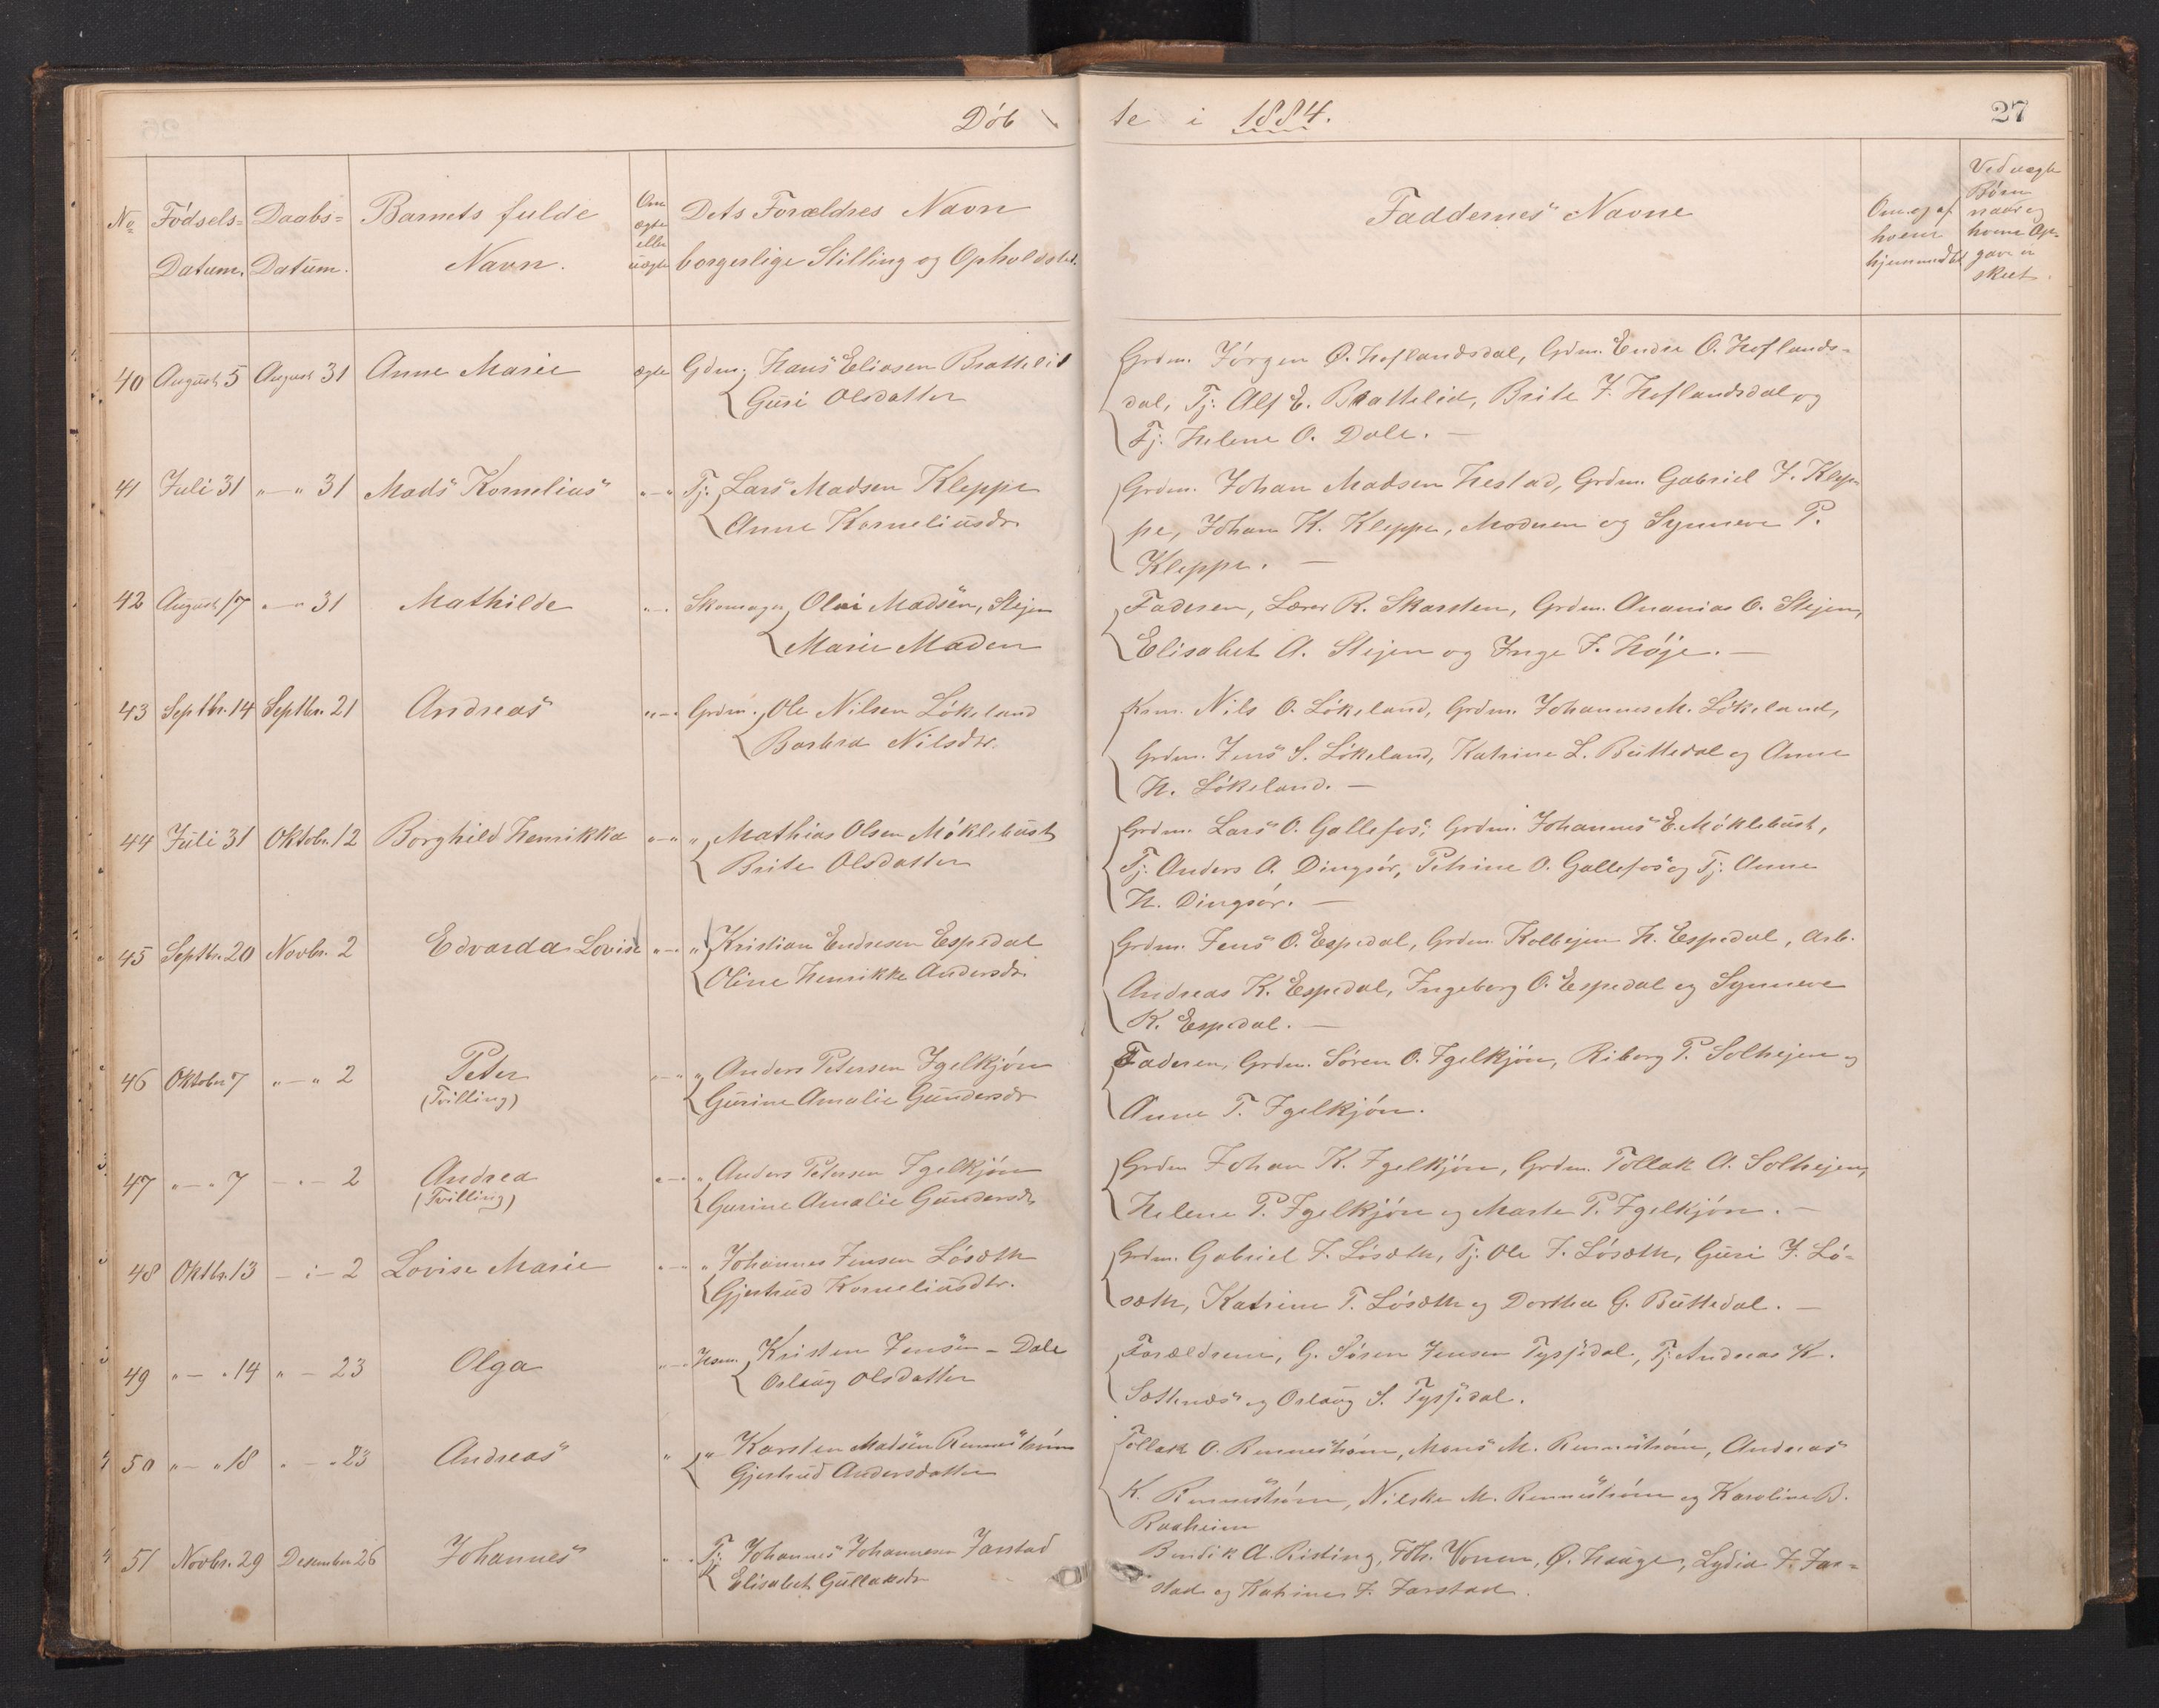 Döb
te i 1884.
27
No
Födsels=
Datum.
Daabs=
Datum.
Barnets fulde
Navn.
Om
ægte
eller
uægte
Dets Forældres Navn
borgerlige Stilling og Opholdsted.
Faddernes Navne
Om og af
hvem
hjemmedöbt
Ved uægte
Börn
naar og
hvem Op-
gave er
skeet.
40 August 5 August 31 Anne Marie ægte Gdm. Hans Eliasen Brattelid
Guri Olsdatter
Grdm. Jörgen O. Hoflandsdal, Grdm. Endre O. Hoflands-
dal, Tj. Alf E. Brattelid, Brite J. Hoflandsdal og
Tj. Helene O. Dale. —
41 Juli 31 „—„ 31 Mads Kornelius „—„ Tj. Lars Madsen Kleppe
Anne Korneliusdr.
Grdm. Johan Madsen Hestad, Grdm. Gabriel J. Klep-
pe, Johan K. Kleppe, Moderen og Synneve P.
Kleppe. —
42 August 17 „—„ 31 Mathilde „—„ Skomager Olai Madsen, Stejen
Marie Maden
Faderen, Lærer R. Skarsten, Grdm. Ananias O. Stejen,
Elisabet A. Stejen og Inge J. Höje. —
43 Septbr. 14 Septbr. 21 Andreas „—„ Grdm. Ole Nilsen Lökeland
Barbra Nilsdtr.
Krm. Nils O. Lökeland, Grdm. Johannes M. Lökeland,
Grdm. Jens S. Lökeland, Katrine L. Buttedal og Anne
H. Lökeland. —
44 Juli 31 Oktobr. 12 Borghild Henrikka „—„ „ Mathias Olsen Möklebust
Brite Olsdatter
Grdm. Lars O. Gallefos, Grdm. Johannes E. Möklebust,
Tj. Anders A. Dingsör, Petrine O. Gallefos og Tj. Anne
H. Dingsör. —
45 Septbr. 20 Novbr. 2 Edvarda Lovise „—„ „ Kristian Endresen Espedal
Oline Henrikke Andersdr.
Grdm. Jens O. Espedal, Grdm. Kolbejen H. Espedal, Arb.
Andreas K. Espedal, Ingeborg O. Espedal og Synneve
K. Espedal. —
46 Oktober 7 „—„ 2 Peter „—„ „ Anders Petersen Igelkjön
(Tvilling) Gurine Amalie Gundersdr
Faderen, Grdm. Sören O. Igelkjön, Riborg P. Solhejen og
Anne T. Igelkjön.
47 „—„ 7 —„— 2 Andrea „—„ „ Anders Petersen Igelkjön
(Tvilling) Gurine Amalie Gundersdr
Grdm Johan K. Igelkjön, Grdm. Tollak A. Solhejen,
Helene P. Igelkjön og Marte P. Igelkjön. —
48 Oktbr. 13 —„— 2 Lovise Marie „—„ „ Johannes Jensen Lösæth
Gjertrud Korneliusdtr.
Grdm. Gabriel J. Lösæth, Tj. Ole J. Lösæth, Guri J. Lö-
sæth, Katrine T. Lösæth og Dorthea G. Buttedal. —
49 „—„ 14 „— 23 Olga „—„ Hsm. Kristen Jensen - Dale
Oslaug Olsdatter
Forældrene, G. Sören Jensen Tyssedal, Tj. Andreas K.
Sættenæs og Oslaug S. Tyssedal.
50 „—„ 18 „—„ 23 Andreas „ „ Karsten Madsen Renneström
Gjertrud Andersdatter
Tollak O. Renneström, Mons M. Renneström, Andreas
K. Renneström, Nilske M. Renneström og Karoline B.
Raaheim
51 Novbr. 29 Desember 26 Johannes „ „ Tj. Johannes Johannesen Jarstad
Elisabet Gullaksdr
Bendik A. Risting, Joh. Vonen, O. Hauge, Lydia J. Jar-
stad og Katrine J. Jarstad.